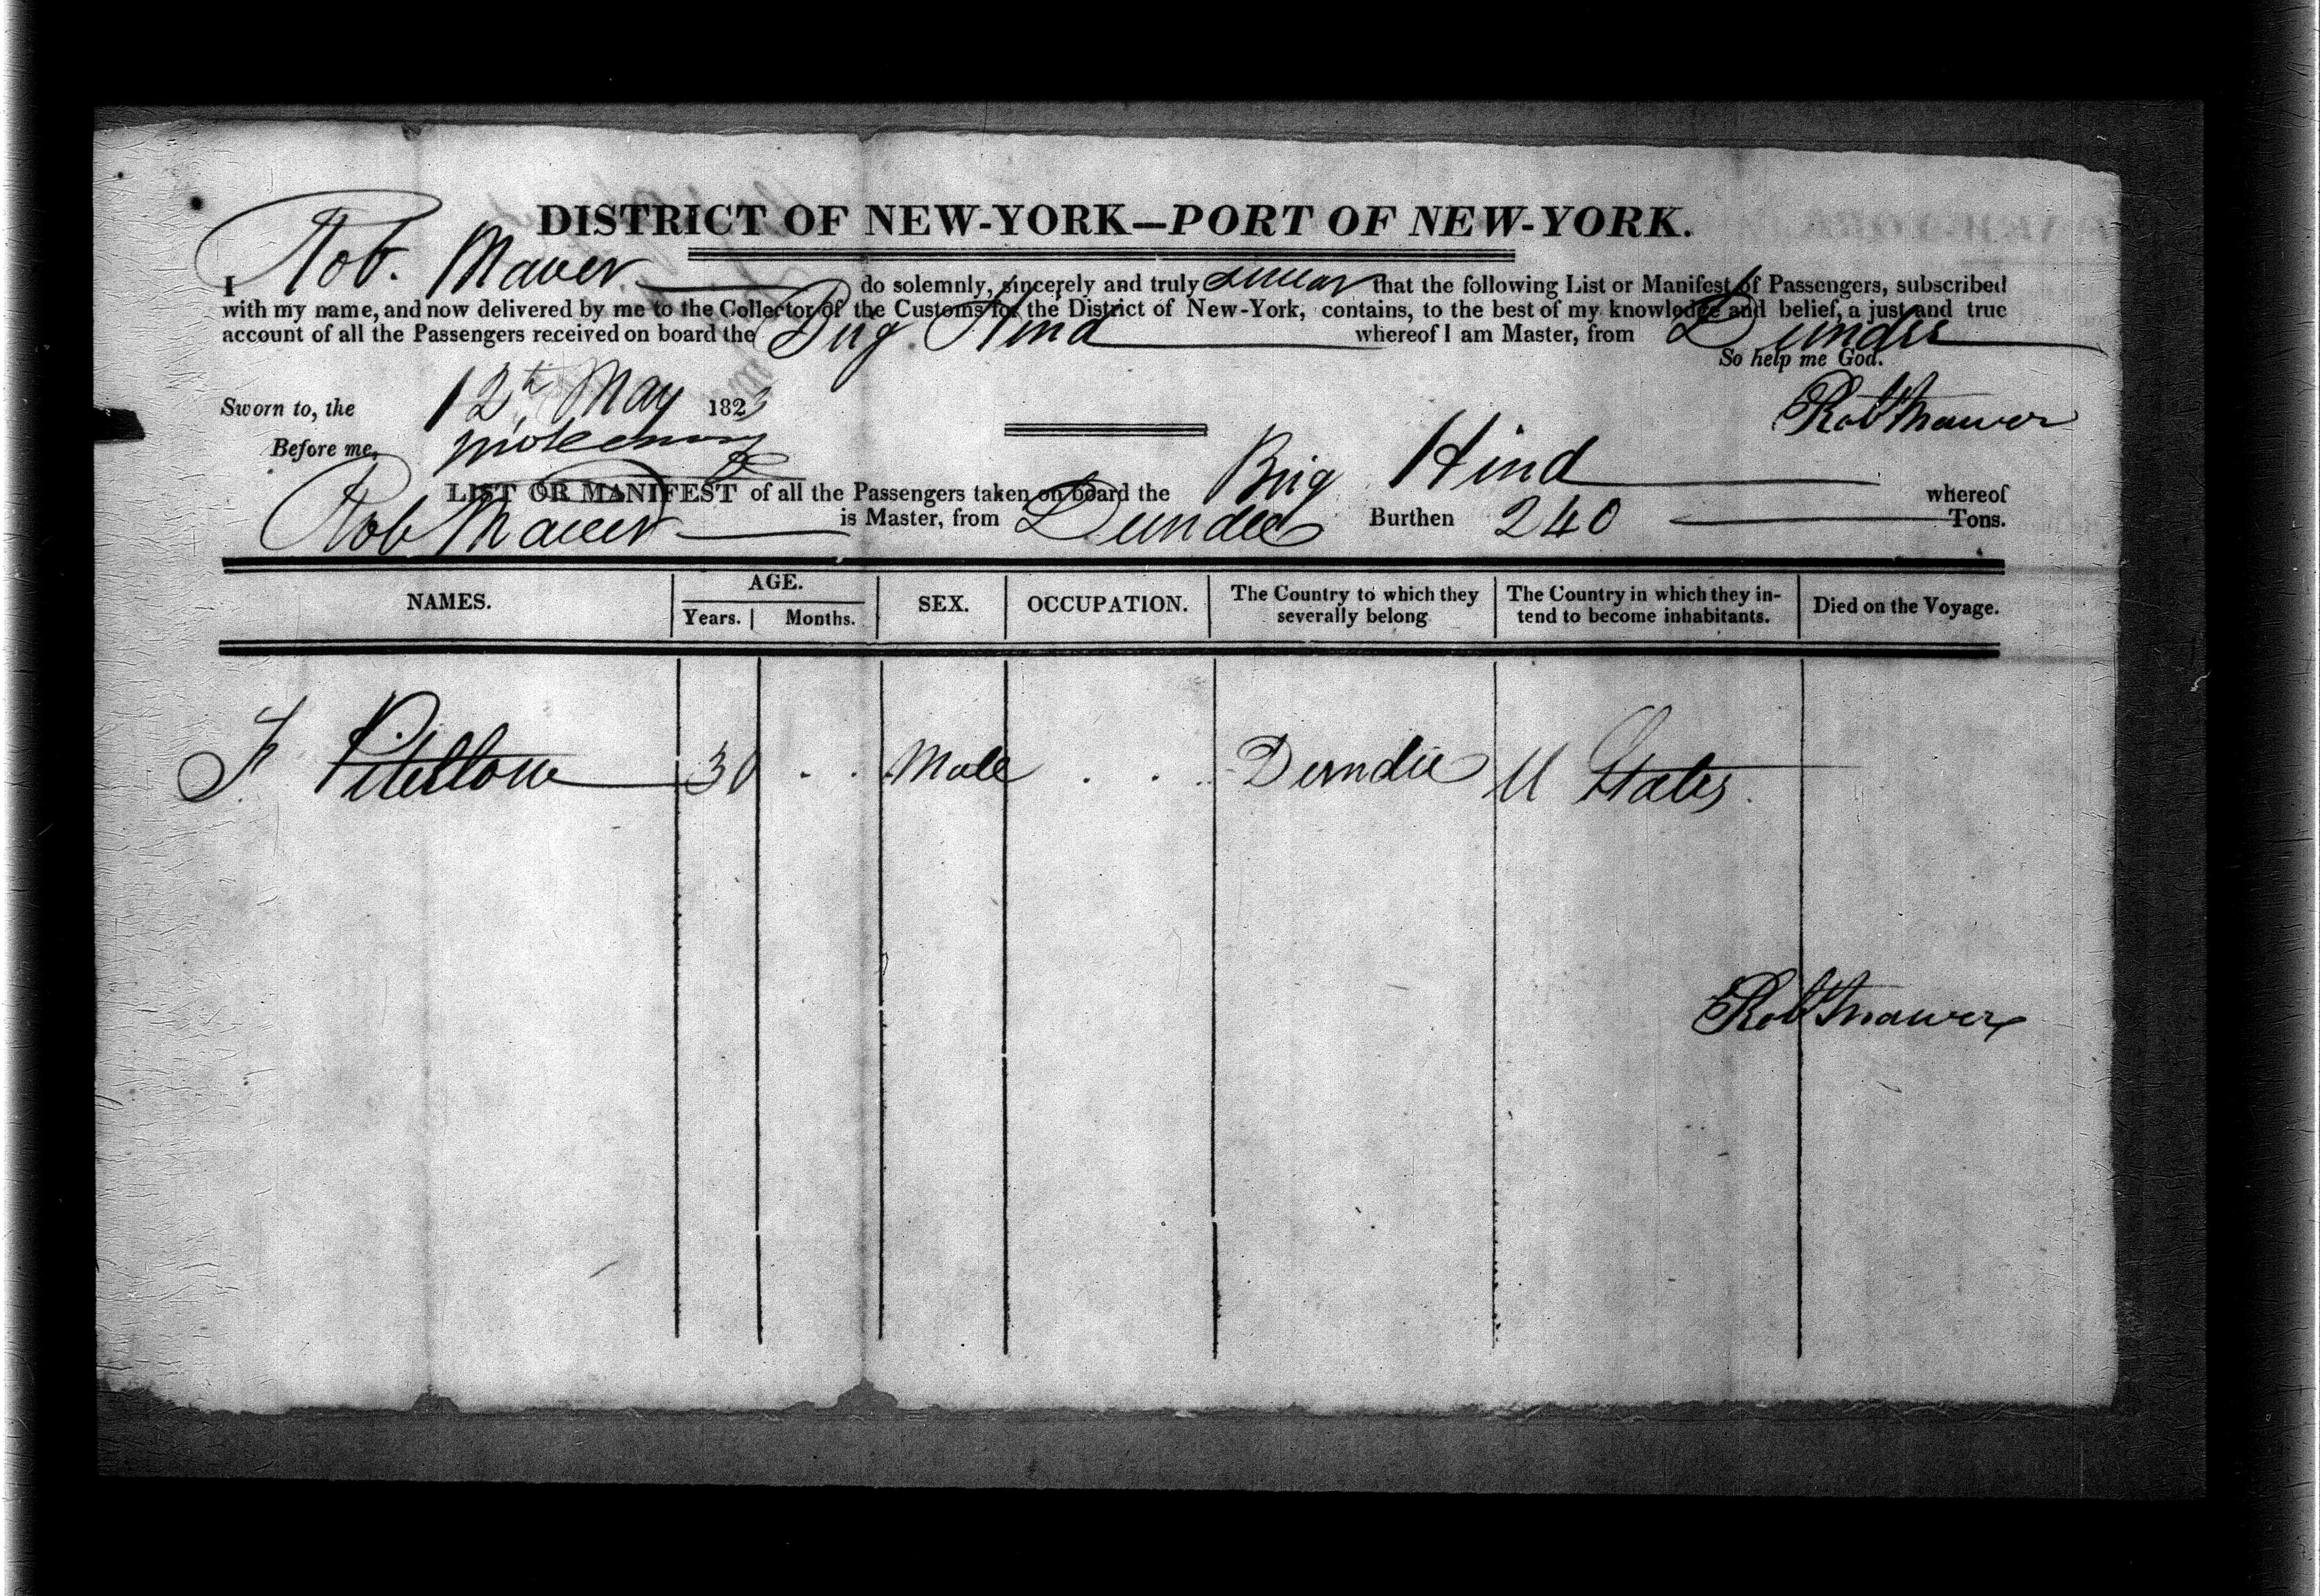 DISTRICT OF NEW-YORK—PORT OF NEW-YORK.
I Rob. Mawer do solemnly, sincerely and truly swear that the following List or Manifest of Passengers, subscribed
with my name, and now delivered by me to the Collector of the Customs for the District of New-York, contains, to the best of my knowledge and belief, a just and true
account of all the Passengers received on board the Brig Hind whereof I am Master, from Dundee
So help me God.
Sworn to, the 12th May 1823
Robt Mawer
Before me,
LIST OR MANIFEST of all the Passengers taken on board the Brig Hind whereof
Rob Mawer is Master, from Dundee Burthen 240 Tons.
NAMES. AGE. Years. Months. SEX. OCCUPATION. The Country to which they severally belong The Country in which they intend to become inhabitants. Died on the Voyage.
30 Male Dundee U States
Robt Mawer